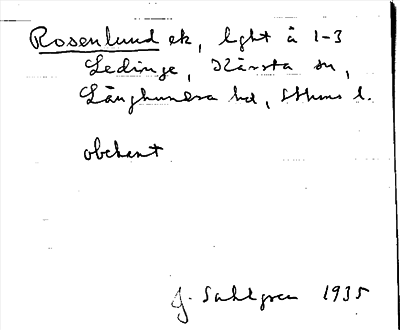 Rosenlund ek, lght å 1-3
Ledinge, Kårsta sn,
Långhundra hd, Sthms l.
obekant
J. Sahlgren 1935